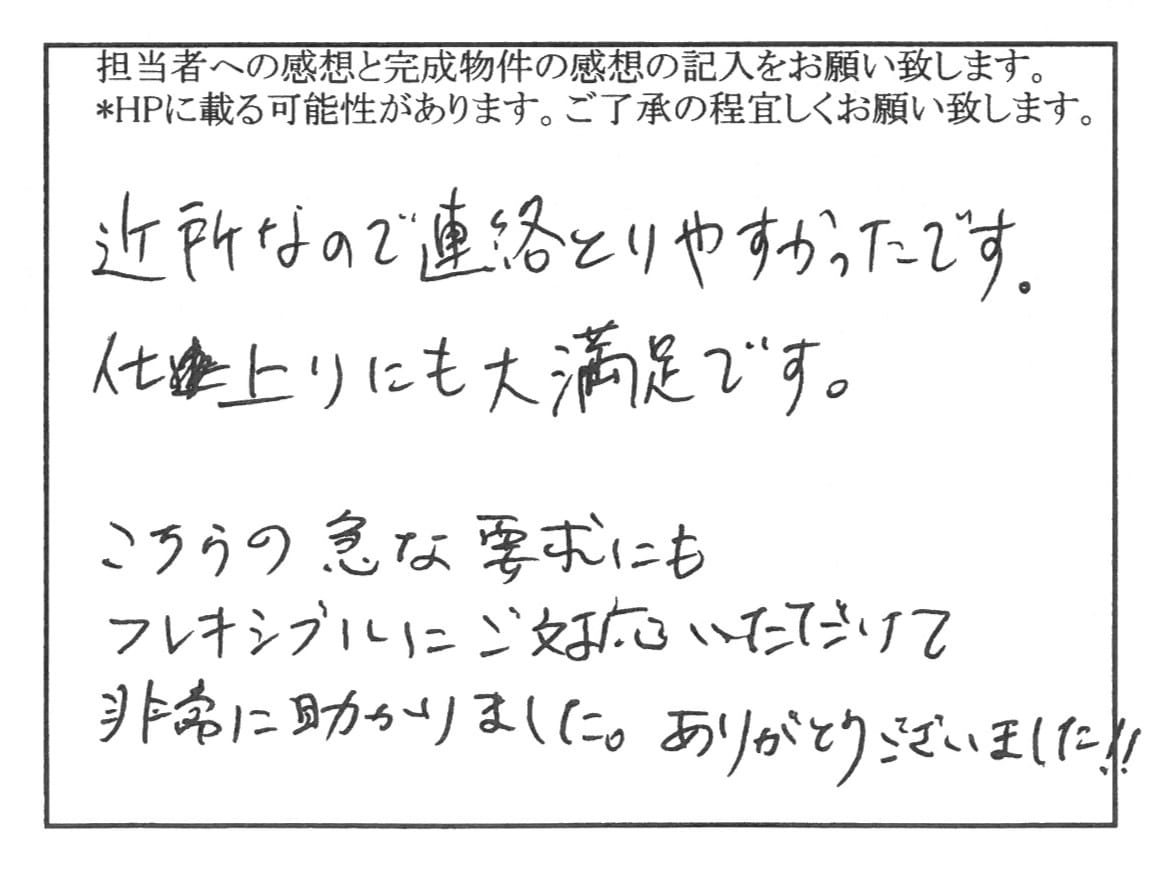 担当者への感想と完成物件の感想の記入をお願い致します。
*HPに載る可能性があります。ご了承の程宜しくお願い致します。
近所なので連絡とりやすかったです。
仕上りにも大満足です。
こちらの急な要求にも
フレキシブルにご対応いただけて
非常に助かりました。ありがとうございました!!